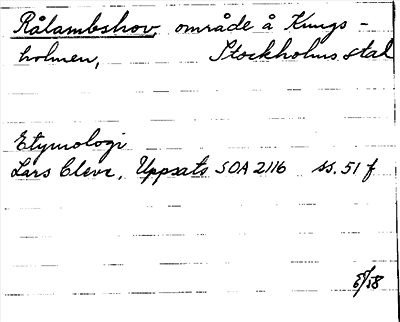 Rålambshov, område å Kungs-
holmen, Stockholms stad
Etymologi
Lars Cleve, Uppsats SOA 2116 ss. 51 f
5/58